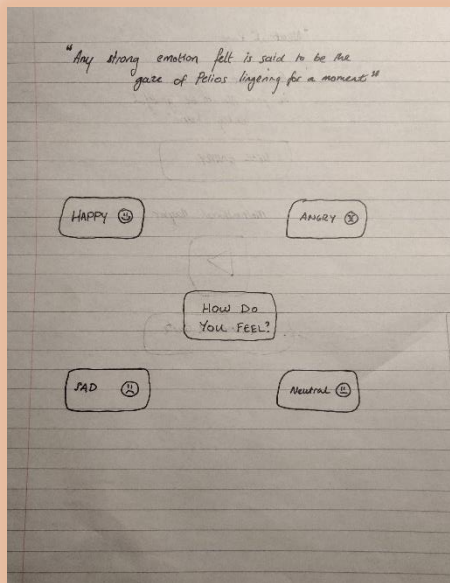 "Any strong emotion felt is said to be the
gaze of Pelios lingering for a moment"
HAPPY
ANGRY
HOW DO
YOU FEEL?
SAD
Neutral